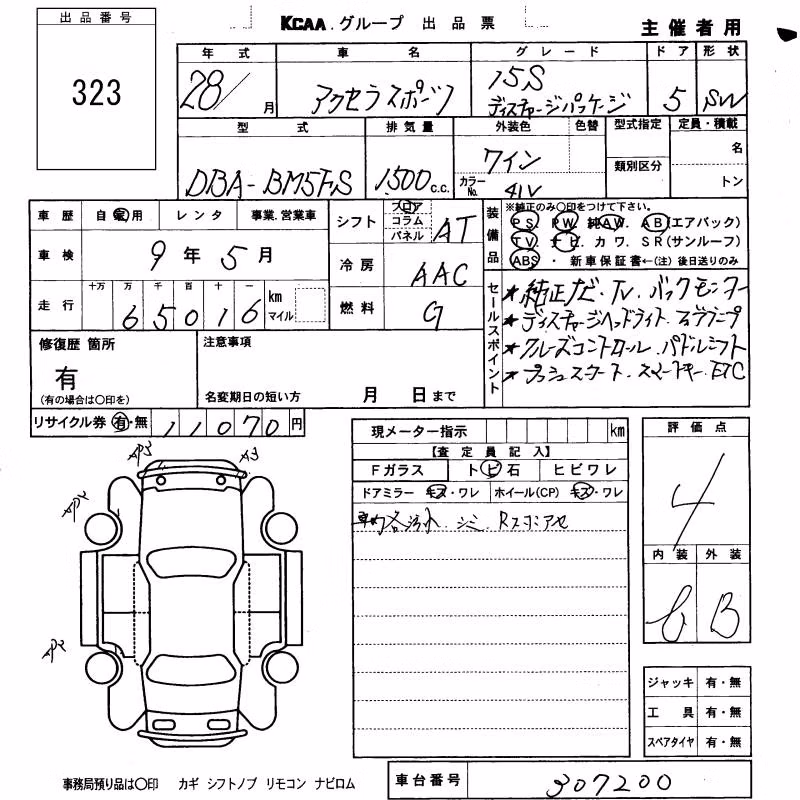 出品番号
323
KCAA グループ 出品票
主催者用
年式 車名 グレード ドア 形状
28/ 月 アクセラスポーツ 15S 5 SW
ディスチャージパッケージ
型式 排気量 外装色 色替 型式指定 定員・積載
DBA-BM5FS 1500 c.c. ワイン 名
カラーNo. 41V 類別区分 トン
車歴 自家用 レンタ 事業.営業車
車検 9年5月
走行 十万 万 千 百 十 一
65016 km マイル
シフト フロア コラム パネル AT
冷房 AAC
燃料 G
装備品 ※純正のみ〇印をつけて下さい。
PS. PW. 純AW. AB(エアバック)
TV. ナビ. カワ. SR(サンルーフ)
ABS ・ 新車保証書←(注)後日送りのみ
セールスポイント
★純正ナビ・TV. バックモニター
★ディスチャージヘッドライト.
★クルーズコントロール.パドルシフト
★プッシュスタート.スマートキー.ETC
修復歴 箇所
有
(有の場合は〇印を)
注意事項
名変期日の短い方 月 日まで
リサイクル券 有・無 11070円
現メーター指示 km
【査定員記入】
Fガラス トビ石 ヒビワレ
ドアミラー キズ・ワレ ホイール(CP) キズ・ワレ
シミ. R
評価点
4
内装 外装
B
ジャッキ 有・無
工具 有・無
スペアタイヤ 有・無
事務局預り品は〇印 カギ シフトノブ リモコン ナビロム
車台番号 307200